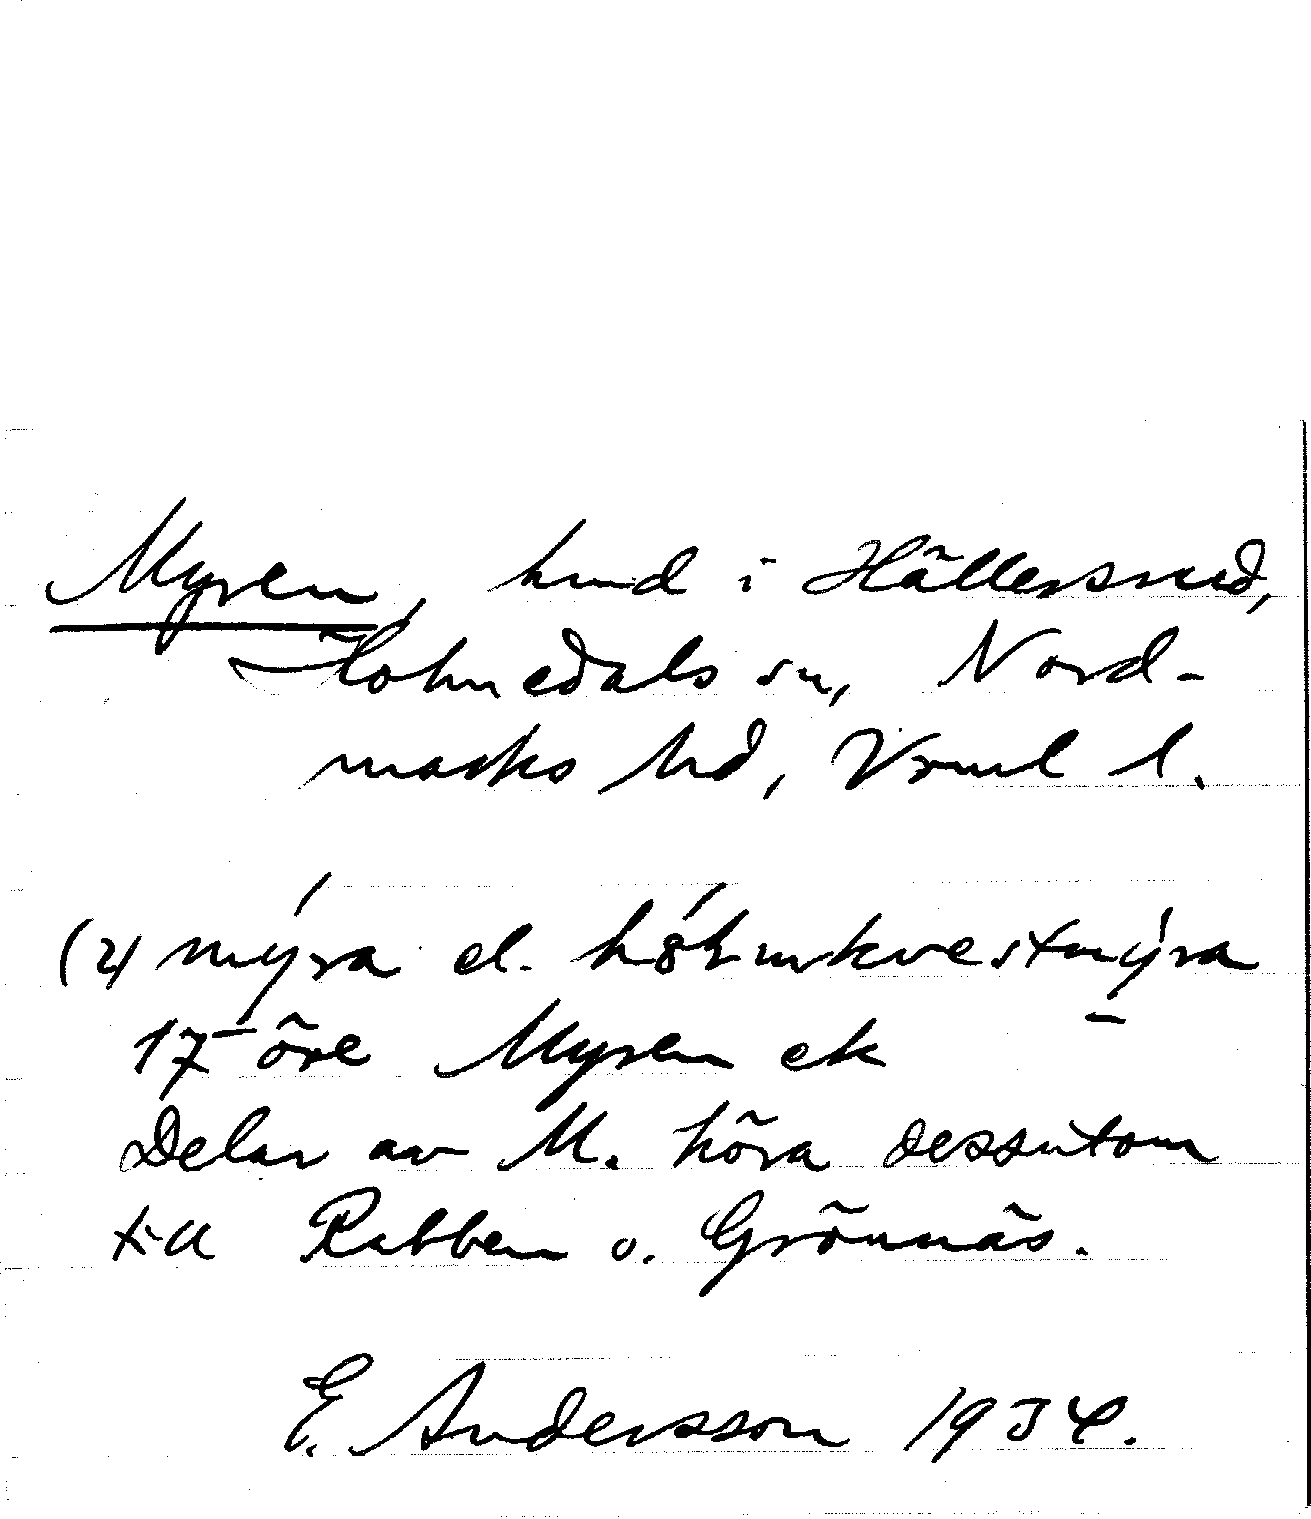 Myren, hmd i Hällersrud,
Holmedals sn, Nord-
marks hd, Vrml l.
(2) mýra el.
17 öre Myren ek
Delar av M. höra dessutom
till Rabben o. Grönnäs.
E. Andersson 1934.